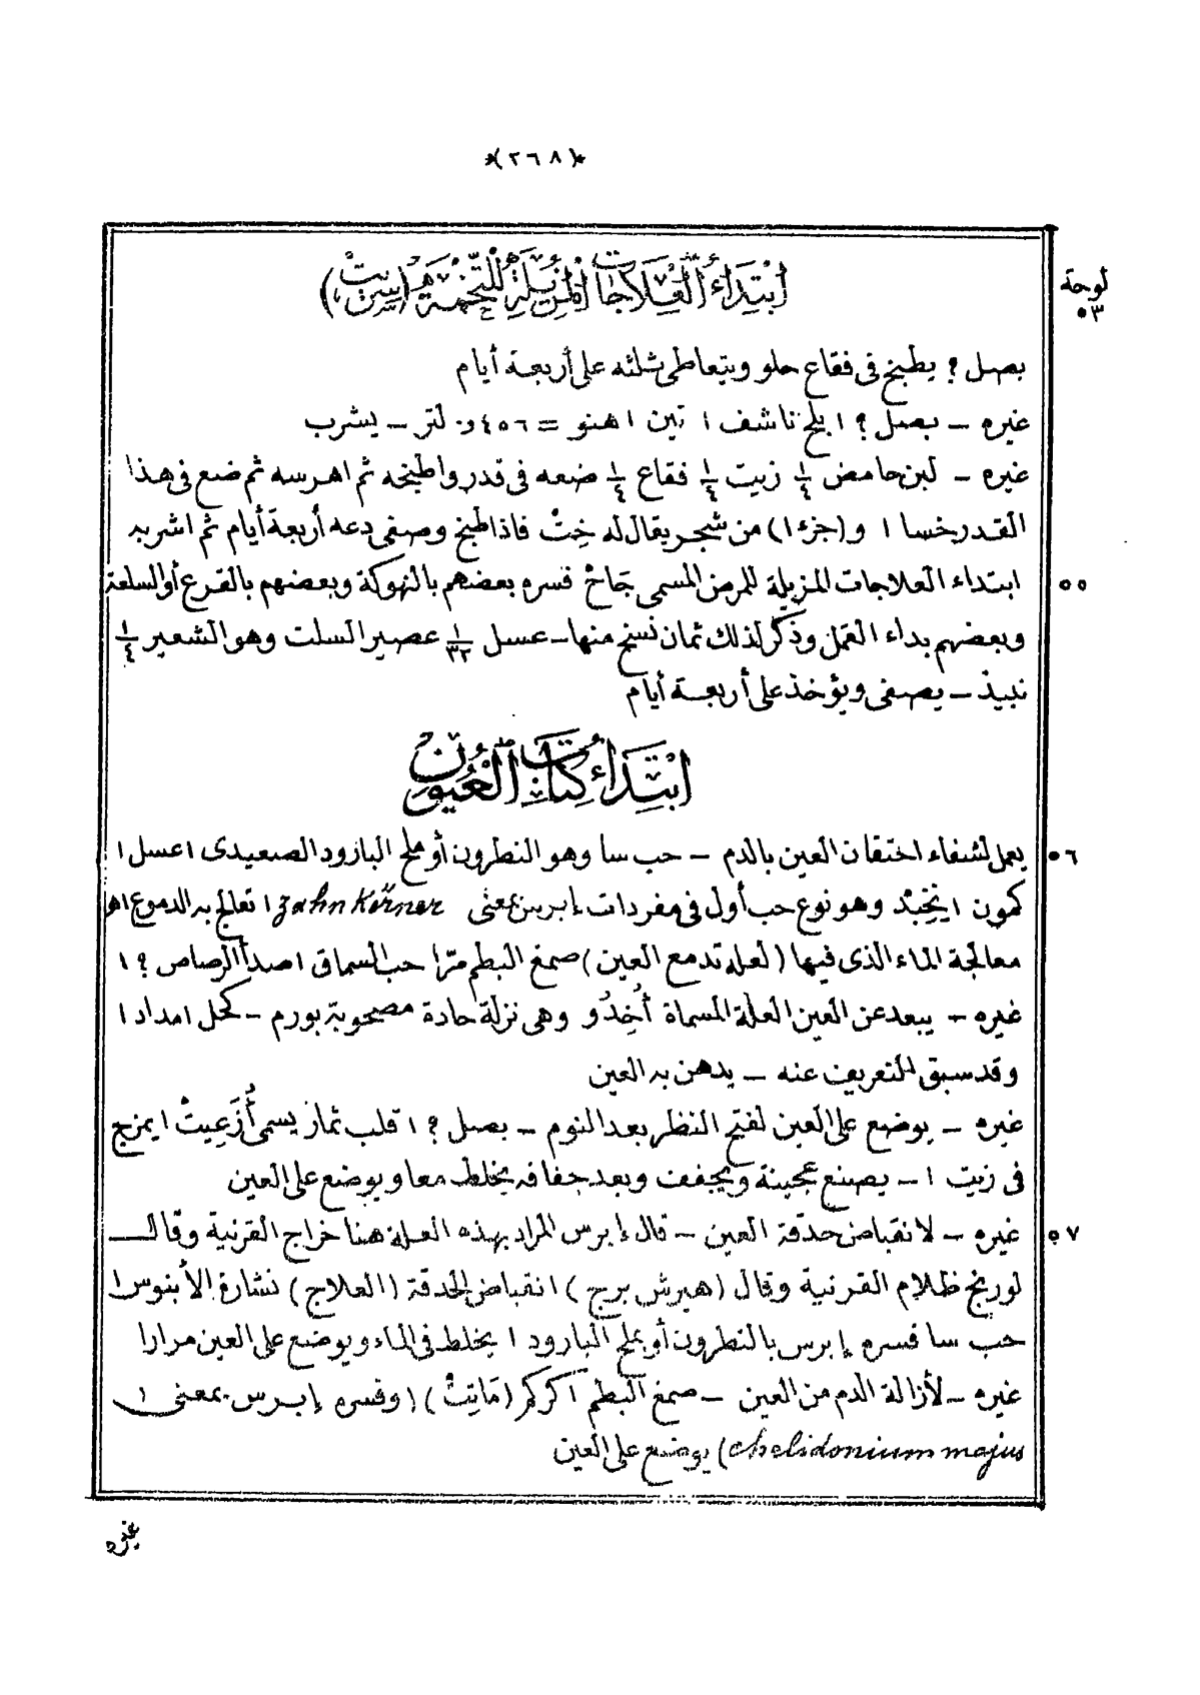 *(٢٦٨)*
لوحة
٥٣
ابتداء العلاجات المزيلة للتخمة (سريت)
بصل ؟ يطبخ فى فقاع حلو ويتعاطى ثلثه على أربعة أيام
غيره – بصل ؟ ١ بلح ناشف ١ تين ١ هنو = ٤٥٦و٠ لتر – يشرب
غيره – لبن حامض ١/٤ زيت ١/٤ فقاع ١/٤ ضعه فى قدر واطبخه ثم اهرسه ثم ضع فى هذا
القدر خسا ١ و (جزء ١) من شجر يقال له خِتْ فاذا طبخ وصفى دعه أربعة أيام ثم اشربه
٥٥
ابتداء العلاجات المزيلة للمرض المسمى جَاحْ فسره بعضهم بالنهوكة وبعضهم بالقرع أو السلعة
وبعضهم بداء القمل وذكر لذلك ثمان نسخ منها – عسل ١/٣٢ عصير السلت وهو الشعير ١/٤
نبيذ – يصفى ويؤخذ على أربعة أيام
ابتداء كتاب العيون
٥٦
يعمل لشفاء احتقان العين بالدم – حب سا وهو النطرون أو ملح البارود الصعيدى ١ عسل ١
كمون ١ وهو نوع حب أول فى مفردات إبرس بمعنى Zahn Körner ١ تعالج به الدموع اه
معالجة الماء الذى فيها (لعله تدمع العين) صمغ البطم مرّ ١ حب السماق ١ صدأ الرصاص ؟ ١
غيره – يبعد عن العين العلة المسماة أُخِدُو وهى نزلة حادة مصحوبة بورم – كحل ١ مداد ١
وقد سبق التعريف عنه – يدهن به العين
غيره – يوضع على العين لفتح النظر بعد النوم – بصل ؟ ١ قلب ثمار يسمى أُزَعِيتْ ١ يمزج
فى زيت ١ – يصنع عجينة ويجفف وبعد جفافه يخلط معا ويوضع على العين
٥٧
غيره – لانقباض حدقة العين – قال إبرس المراد بهذه العلة هنا خراج القرنية وقال
لورنج ظلام القرنية وقال (هيرش برج) انقباض الحدقة (العلاج) نشارة الأبنوس ١
حب سا فسره إبرس بالنطرون أو بملح البارود ١ يخلط فى الماء ويوضع على العين مرارا
غيره – لأزالة الدم من العين – صمغ البطم ١ كركم (مَاتِتْ) ١ (وفسره إبرس بمعنى ١
chelidonium majus) يوضع على العين
غيره